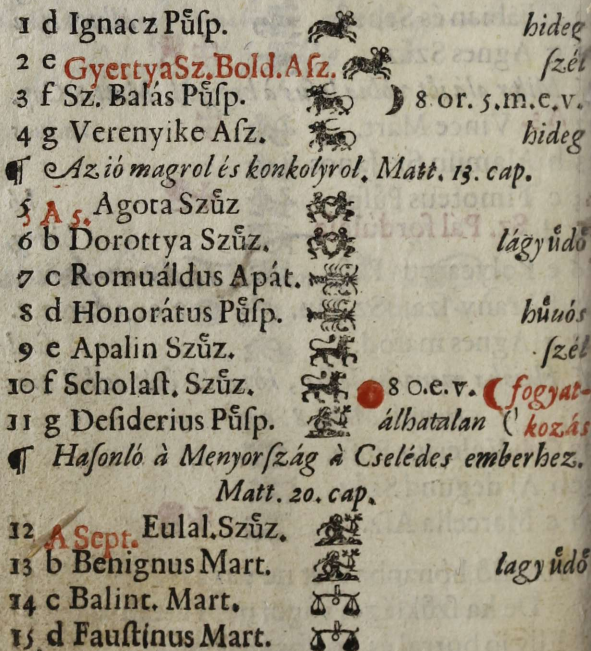 1 d Ignacz Püſp. hideg
2 e GyertyaSz.Bold.Aſz. ſzél
3 f Sz. Balás Püſp. ☽ 8 or. 5.m.e.v.
4 g Verenyike Aſz. hideg
¶ Az ió magrol és konkolyrol. Matt. 13. cap.
5 A 5. Agota Szüz
6 b Dorottya Szüz. lágy üdö
7 c Romuáldus Apát.
8 d Honorátus Püſp. hüuós
9 e Apalin Szüz. ſzél
10 f Scholaſt. Szüz. 8 o.e.v. ☾ fogyat-
11 g Deſiderius Püſp. álhatalan kozás
¶ Haſonló à Menyorſzág à Cselédes emberhez.
Matt. 20. cap.
12 A Sept. Eulal.Szüz.
13 b Benignus Mart. lagy üdö
14 c Balint. Mart.
15 d Fauſtinus Mart.